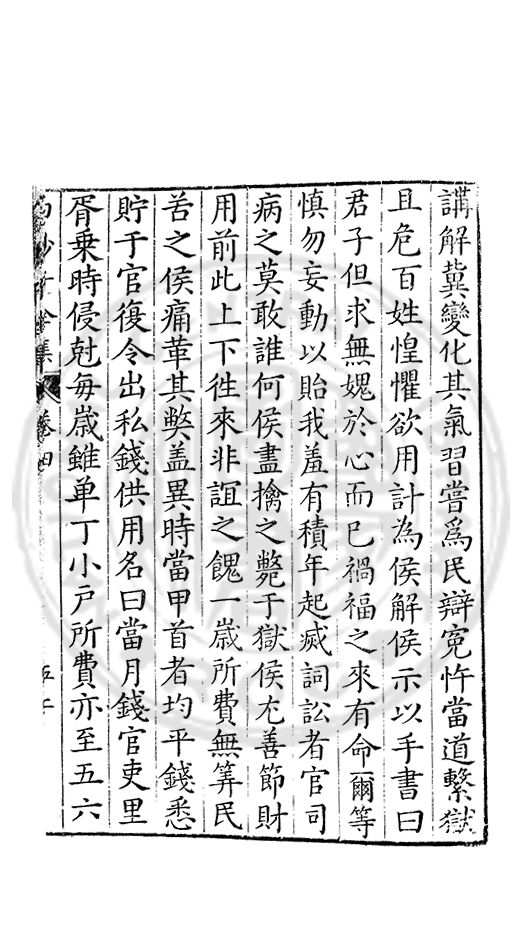 講解冀變化其氣習嘗爲民辯寃忤當道繫獄
且危百姓惶懼欲用計為侯解侯示以手書曰
君子但求無媿於心而已禍福之來有命爾等
慎勿妄動以貽我羞有積年起滅詞訟者官司
病之莫敢誰何侯盡擒之斃于獄侯尤善節財
用前此上下徃來非誼之餽一歲所費無筭民
苦之侯痛革其獘盖異時當甲首者均平錢悉
貯于官復令出私錢供用名曰當月錢官吏里
胥乗時侵尅每歲雖单丁小户所費亦至五六
全集 卷四